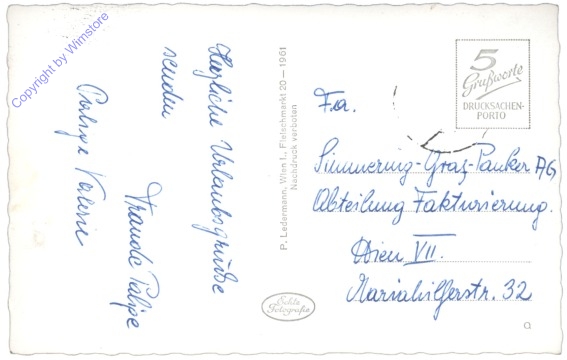 Copyright by Wimstore
Herzliche Urlaubsgrüße
senden
Traude Palipe
Valerie
P. Ledermann, Wien I., Fleischmarkt 20 — 1961
Nachdruck verboten
Echte
Fotografie
5
Grußworte
DRUCKSACHEN-
PORTO
Fa.
Simmering-Graz-Pauker AG
Abteilung Fakturierung.
Wien VII.
Mariahilferstr. 32
Q